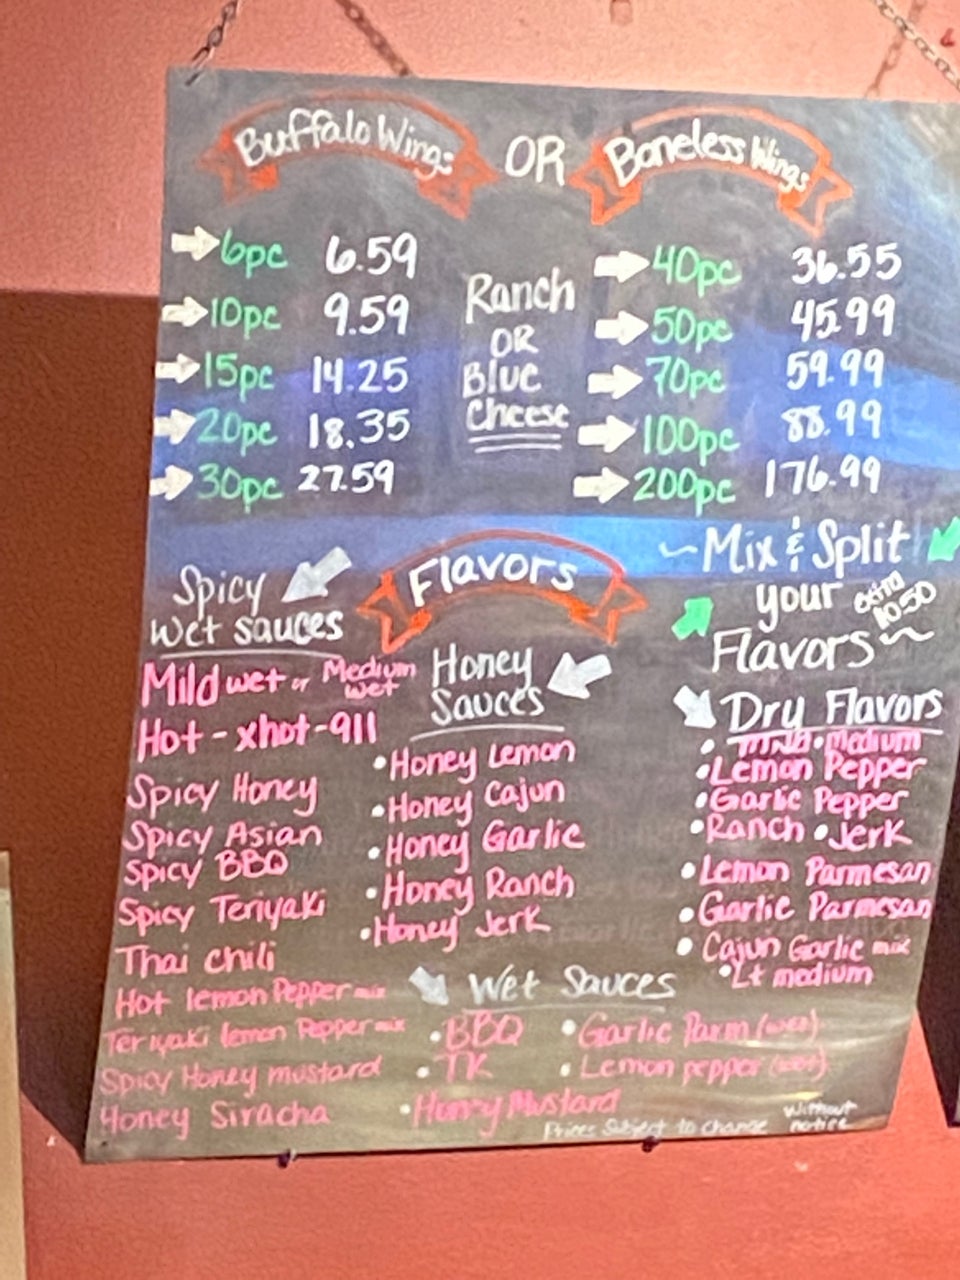 Buffalo Wings OR Boneless Wings
6pc 6.59
10pc 9.59
15pc 14.25
20pc 18.35
30pc 27.59
Ranch
OR
Blue
Cheese
40pc 36.55
50pc 45.99
70pc 59.99
100pc 88.99
200pc 176.99
~Mix & Split
your extra
10.50
Flavors~
Flavors
Spicy
Wet sauces
Mild wet or Medium
wet
Hot - xhot - 911
Spicy Honey
Spicy Asian
Spicy BBQ
Spicy Teriyaki
Thai chili
Hot lemon Pepper mix
Teriyaki lemon Pepper mix
Spicy Honey mustard
Honey Siracha
Honey
Sauces
• Honey Lemon
• Honey Cajun
• Honey Garlic
• Honey Ranch
• Honey Jerk
Dry Flavors
• Mild • Medium
• Lemon Pepper
• Garlic Pepper
• Ranch • Jerk
• Lemon Parmesan
• Garlic Parmesan
• Cajun Garlic mix
• Lt medium
Wet Sauces
• BBQ • Garlic Parm (wet)
• TK • Lemon pepper (wet)
• Honey Mustard
Prices Subject to change without
notice